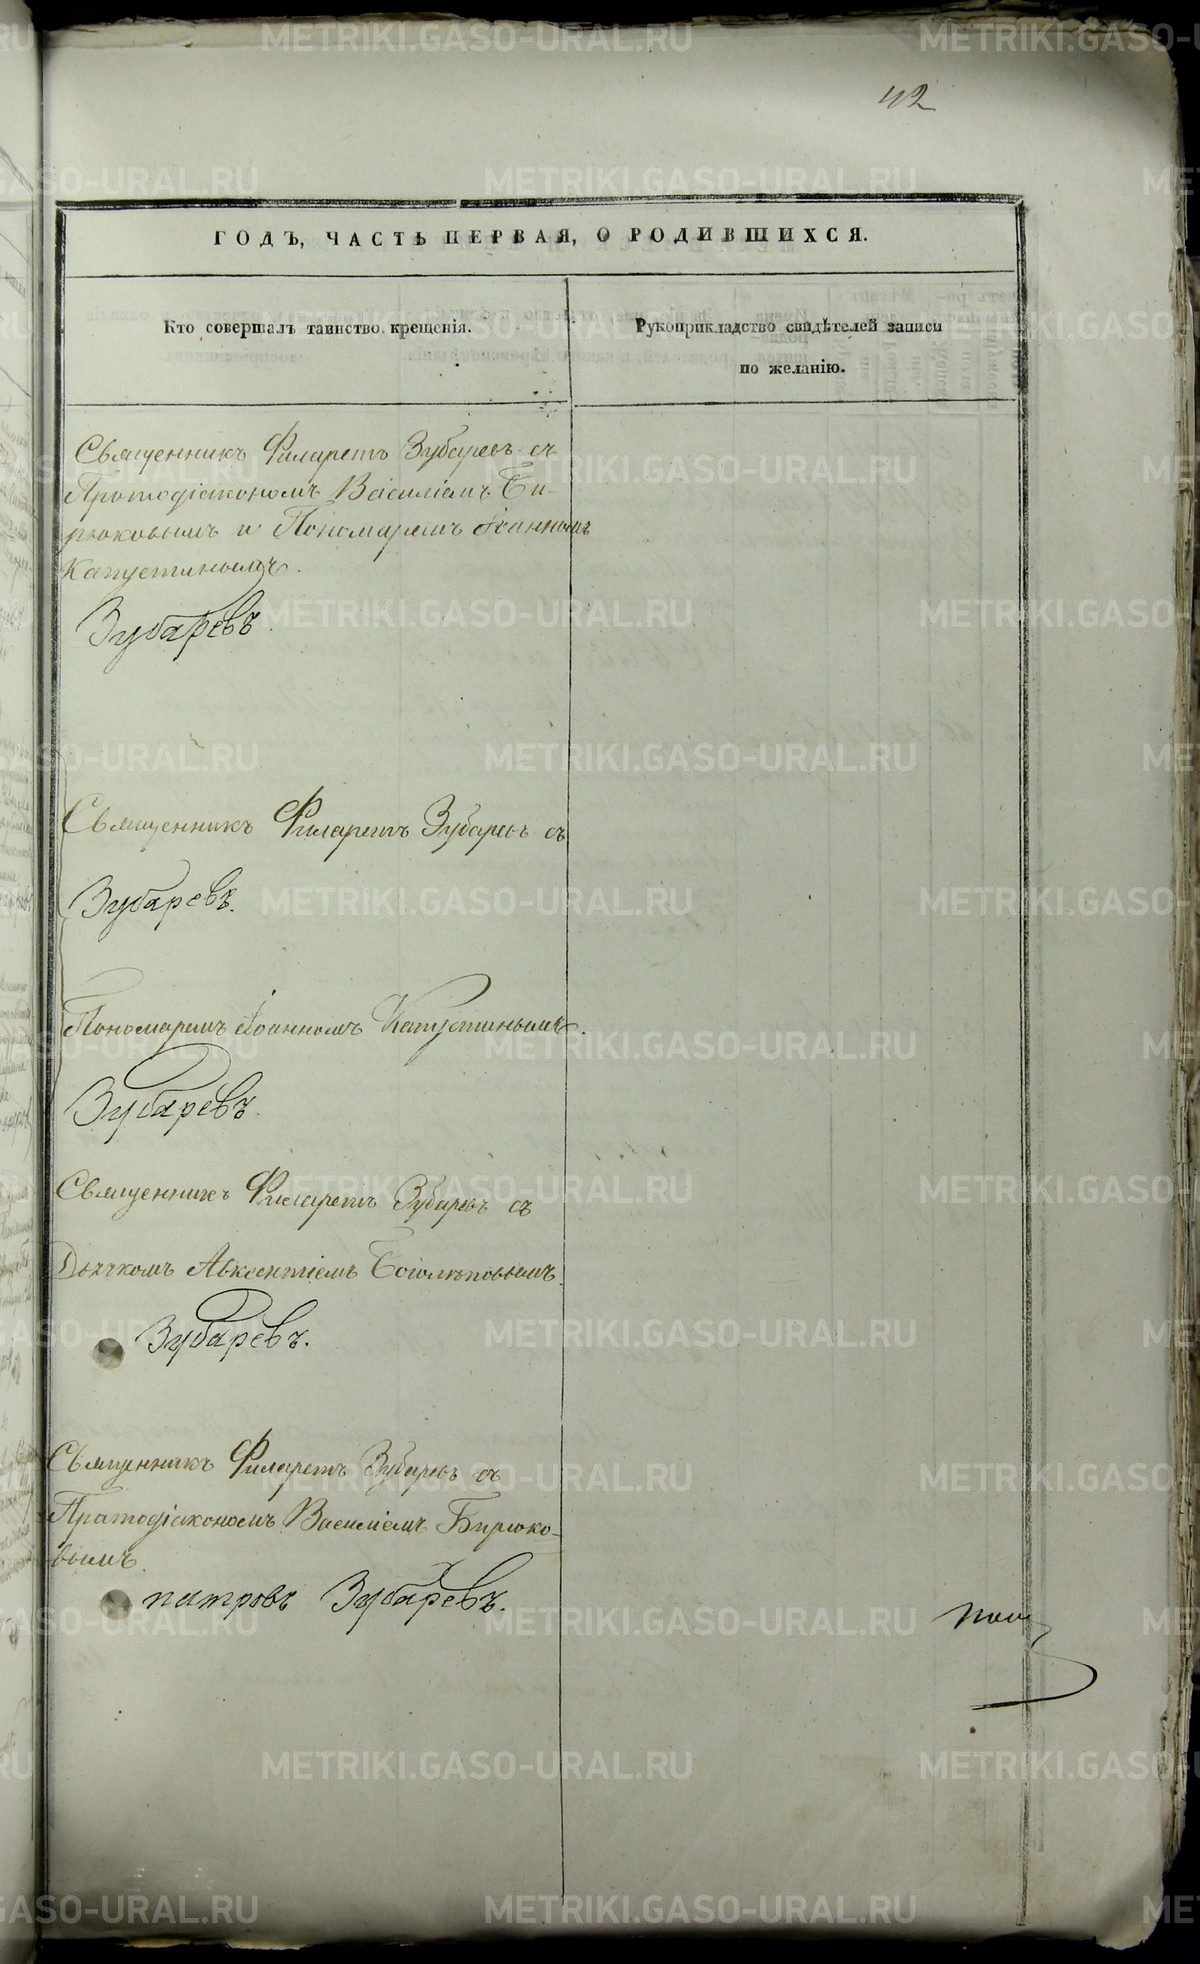 42
ГОДЪ, ЧАСТЬ ПЕРВАЯ, О РОДИВШИХСЯ.
Кто совершалъ таинство крещенія.
Рукоприкладство свидѣтелей записи
по желанію.
Священникъ Филаретъ Зубаревъ съ
Протодіакономъ Василіемъ Би-
рюковымъ и Пономаремъ Іоанномъ
Капустинымъ.
Зубаревъ.
Священникъ Филаретъ Зубаревъ съ
Зубаревъ.
Пономаремъ Іоанномъ Капустинымъ.
Зубаревъ.
Священникъ Филаретъ Зубаревъ съ
Дьячкомъ Авксентіемъ Боголѣповымъ.
Зубаревъ.
Священникъ Филаретъ Зубаревъ съ
Протодіакономъ Василіемъ Бирюко-
вымъ.
Зубаревъ.
METRIKI.GASO-URAL.RU